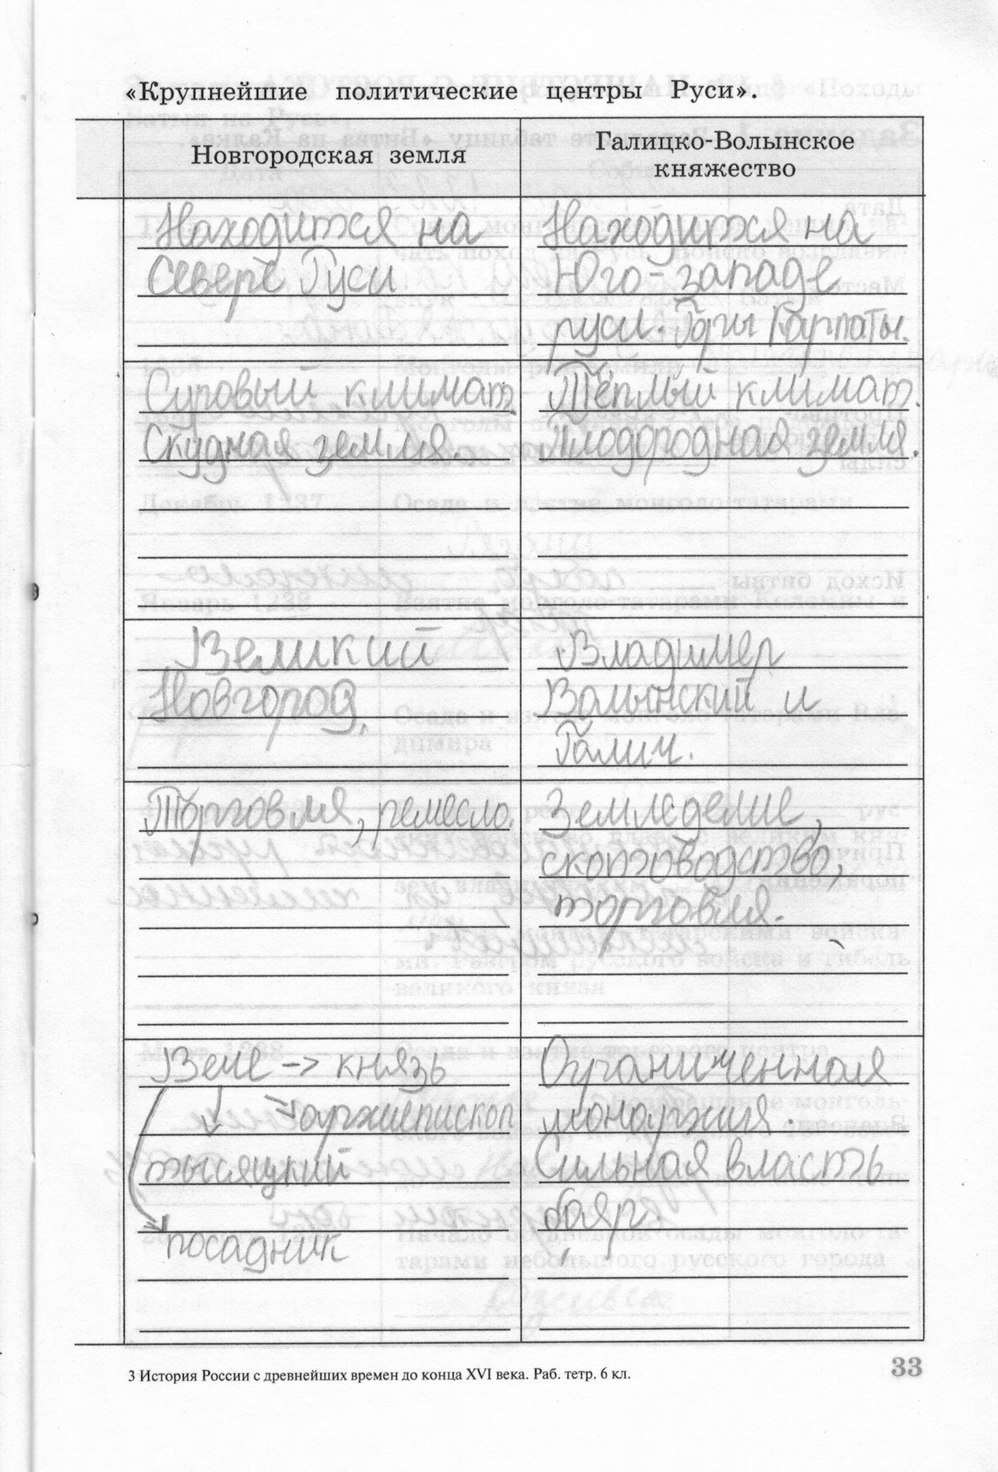 «Крупнейшие политические центры Руси».
Новгородская земля
Галицко-Волынское
княжество
Находится на
Севере Руси
Находится на
Юго-западе
руси. Горы Карпаты.
Суровый климат
Скудная земля.
Тёплый климат.
Плодородная земля.
Великий
Новгород.
Владимер
Волынский и
Галич.
Торговля, ремесло.
Земледелие,
скотоводство,
торговля.
Вече -> князь
архиепископ
тысяцкий
посадник
Ограниченная
монархия.
Сильная власть
бояр.
3 История России с древнейших времен до конца XVI века. Раб. тетр. 6 кл.
33